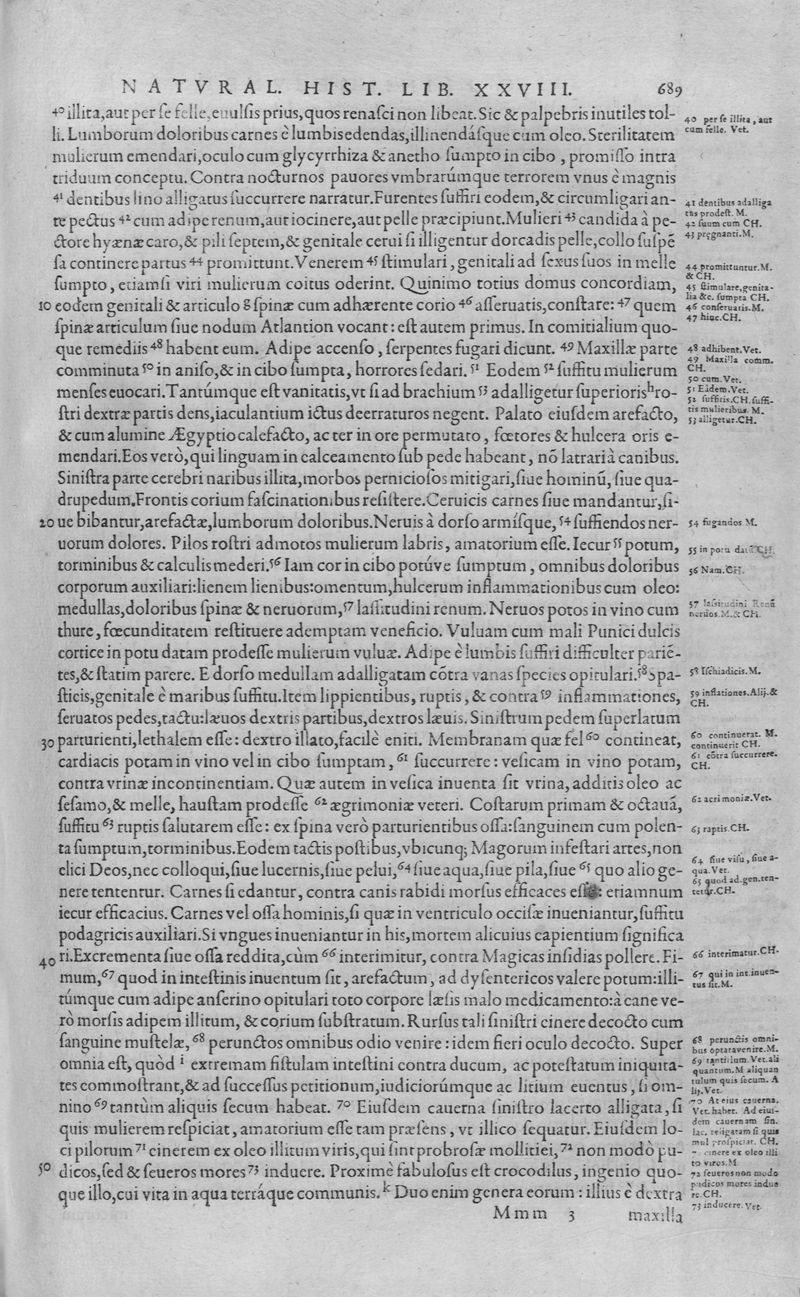 NATVRAL. HIST. LIB. XXVIII. 689
40 illita, aut per se felle, euulsis prius, quos renasci non libeat. Sic & palpebris inutiles tol-
li. Lumborum doloribus carnes è lumbis edendas, illinendásque cum oleo. Sterilitatem
mulierum emendari, oculo cum glycyrrhiza & anetho sumpto in cibo, promisso intra
triduum conceptu. Contra nocturnos pauores vmbrarúmque terrorem vnus è magnis
41 dentibus lino alligatus succurrere narratur. Furentes suffiri eodem, & circumligari an-
te pectus 42 cum adipe renum, aut iocinere, aut pelle præcipiunt. Mulieri 43 candida à pe-
ctore hyænæ caro, & pili septem, & genitale cerui si illigentur dorcadis pelle, collo suspē
sa continere partus 44 promittunt. Venerem 45 stimulari, genitali ad sexus suos in melle
sumpto, etiamsi viri mulierum coitus oderint. Quinimo totius domus concordiam,
10 eodem genitali & articulo g spinæ cum adhærente corio 46 asseruatis, constare: 47 quem
spinæ articulum siue nodum Atlantion vocant: est autem primus. In comitialium quo-
que remediis 48 habent eum. Adipe accenso, serpentes fugari dicunt. 49 Maxillæ parte
comminuta 50 in aniso, & in cibo sumpta, horrores sedari. 51 Eodem 52 suffitu mulierum
menses euocari. Tantúmque est vanitatis, vt si ad brachium 53 adalligetur superioris h ro-
stri dextræ partis dens, iaculantium ictus deerraturos negent. Palato eiusdem arefacto,
& cum alumine Ægyptio calefacto, ac ter in ore permutato, fœtores & hulcera oris e-
mendari. Eos verò, qui linguam in calceamento sub pede habeant, nō latrari à canibus.
Sinistra parte cerebri naribus illita, morbos perniciosos mitigari, siue hominū, siue qua-
drupedum. Frontis corium fascinationibus resistere. Ceruicis carnes siue mandantur, si-
20 ue bibantur, arefactæ, lumborum doloribus. Neruis à dorso armísque, 54 suffiendos ner-
uorum dolores. Pilos rostri admotos mulierum labris, amatorium esse. Iecur 55 potum,
torminibus & calculis mederi. 56 Iam cor in cibo potúve sumptum, omnibus doloribus
corporum auxiliari: lienem lienibus: omentum, hulcerum inflammationibus cum oleo:
medullas, doloribus spinæ & neruorum, 57 lassitudini renum. Neruos potos in vino cum
thure, fœcunditatem restituere ademptam veneficio. Vuluam cum mali Punici dulcis
cortice in potu datam prodesse mulierum vuluæ. Adipe è lumbis suffiri difficulter pariē-
tes, & statim parere. E dorso medullam adalligatam cōtra vanas species opitulari. 58 Spa-
sticis, genitale è maribus suffitu. Item lippientibus, ruptis, & contra 59 inflammationes,
seruatos pedes, tactu: læuos dextris partibus, dextros læuis. Sinistrum pedem superlatum
30 parturienti, lethalem esse: dextro illato, facilè eniti. Membranam quæ fel 60 contineat,
cardiacis potam in vino vel in cibo sumptam, 61 succurrere: vesicam in vino potam,
contra vrinæ incontinentiam. Quæ autem in vesica inuenta sit vrina, additis oleo ac
sesamo, & melle, haustam prodesse 62 ægrimoniæ veteri. Costarum primam & octauā,
suffitu 63 ruptis salutarem esse: ex spina verò parturientibus ossa: sanguinem cum polen-
ta sumptum, torminibus. Eodem tactis postibus, vbicunq; Magorum infestari artes, non
elici Deos, nec colloqui, siue lucernis, siue pelui, 64 siue aqua, siue pila, siue 65 quo alio ge-
nere tententur. Carnes si edantur, contra canis rabidi morsus efficaces esse: etiamnum
iecur efficacius. Carnes vel ossa hominis, si quæ in ventriculo occisæ inueniantur, suffitu
podagricis auxiliari. Si vngues inueniantur in his, mortem alicuius capientium significa
40 ri. Excrementa siue ossa reddita, cùm 66 interimitur, contra Magicas insidias pollere. Fi-
mum, 67 quod in intestinis inuentum sit, arefactum, ad dysentericos valere potum: illi-
túmque cum adipe anserino opitulari toto corpore læsis malo medicamento: à cane ve-
rò morsis adipem illitum, & corium substratum. Rursus tali sinistri cinere decocto cum
sanguine mustelæ, 68 perunctos omnibus odio venire: idem fieri oculo decocto. Super
omnia est, quòd i extremam fistulam intestini contra ducum, ac potestatum iniquita-
tes commostrant, & ad successus petitionum, iudiciorúmque ac litium euentus, si om-
nino 69 tantùm aliquis secum habeat. 70 Eiusdem cauerna sinistro lacerto alligata, si
quis mulierem respiciat, amatorium esse tam præsens, vt illico sequatur. Eiusdem lo-
ci pilorum 71 cinerem ex oleo illitum viris, qui sint probrosæ mollitiei, 72 non modò pu-
50 dicos, sed & seueros mores 73 induere. Proximè fabulosus est crocodilus, ingenio quo-
que illo, cui vita in aqua terráque communis. k Duo enim genera eorum: illius è dextra
Mmm 3 maxilla
40 per se illita, aut
cum felle. Vet.
41 dentibus adalliga
tus prodest. M.
42 suum cum CH.
43 pręgnanti. M.
44 promittuntur. M.
& CH.
45 stimulare, genita-
lia &c. sumpta CH.
46 conseruatis. M.
47 hinc. CH.
48 adhibent. Vet.
49 Maxilla comm.
CH.
50 cum. Vet.
51 Eadem. Vet.
52 suffitis. CH. suffi-
tis mulieribus. M.
53 alligetur. CH.
54 fugandos M.
55 in potu
56 Nam. CH.
57 lassitudini Renū
neruos. M. & CH.
58 Ischiadicis. M.
59 inflationes. Alij. &
CH.
60 continuerat. M.
continuerit CH.
61 cōtra succurrere.
CH.
62 acrimoniæ. Vet.
63 raptis. CH.
64 siue visu, siue a-
qua. Vet.
65 quod ad. gen. ten-
tetur. CH.
66 interimatur. CH.
67 qui in int. inuen-
tus sit. M.
68 perunctis omni-
bus optatavenire. M.
69 tantillum. Vet. ali
quantum. M aliquan
tulum quis secum. A
lij. Vet.
70 At eius cauerna.
Vet. habet. Ad eius-
dem cauernam sin.
lac. religatam si quis
mul prospiciat. CH.
71 cinere ex oleo illi
to viros. M
72 seueros non modo
pudicos mores indue
re. CH.
73 inducere. Vet.